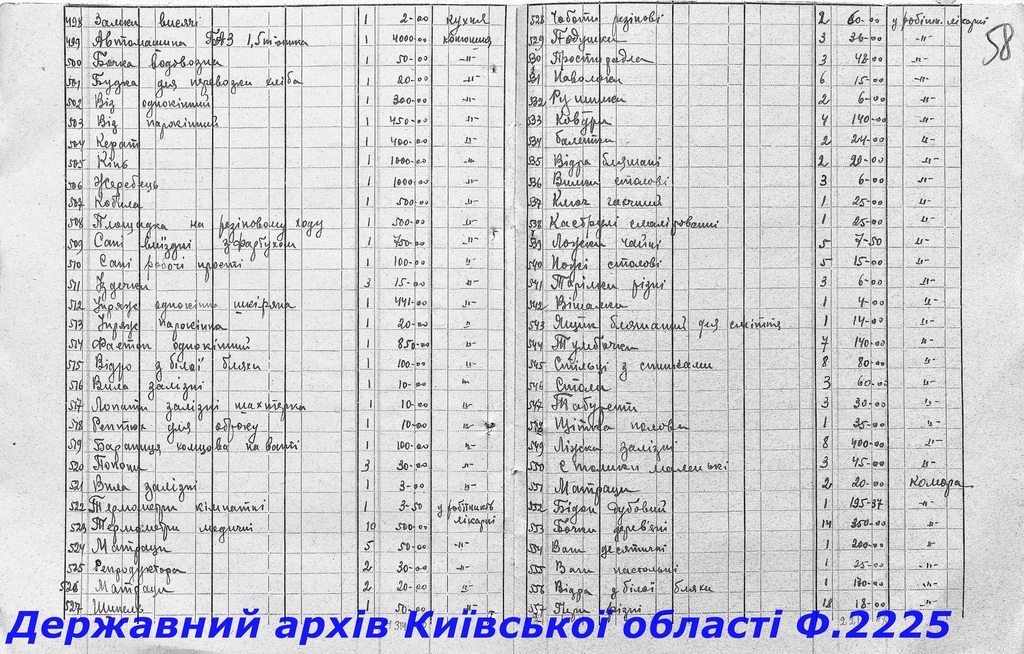 498 Замки висячі 1 2-00 кухня
499 Автомашина ГАЗ 1,5 тонка 1 4000-00 конюшня
500 Бочка водовозна 1 50-00 -"-
501 Будка для перевозки хліба 1 20-00 -"-
502 Віз однокінний 1 300-00 -"-
503 Віз парокінний 1 450-00 -"-
504 Керат 1 400-00 -"-
505 Кінь 1 1000-00 -"-
506 Жеребець 1 1000-00 -"-
507 Кобила 1 500-00 -"-
508 Площадка на резіновому ходу 1 500-00 -"-
509 Сані виїздні з фартухом 1 750-00 -"-
510 Сані робочі прості 1 100-00 -"-
511 Уздечки 3 15-00 -"-
512 Упряж однокінна шкіряна 1 441-00 -"-
513 Упряж парокінна 1 20-00 -"-
514 Фаетон однокінний 1 850-00 -"-
515 Відро з білої бляхи 1 100-00 -"-
516 Вила залізні 1 10-00 -"-
517 Лопати залізні шахтерка 1 10-00 -"-
518 Рептюх для оброку 1 10-00 -"-
519 Бараниця на ваті 1 100-00 -"-
520 Попони 3 30-00 -"-
521 Вила залізні 1 3-00 -"-
522 Термометри кімнатні 1 3-50 у робітників лікарні
523 Термометри медичні 10 500-00
524 Матраци 5 50-00 -"-
525 Репродуктора 2 30-00 -"-
526 Матраци 2 20-00 -"-
527 Шинель 1 50-00 -"-
58
528 Чоботи резінові 2 60-00 у робітн. лікарні
529 Подушки 3 36-00 -"-
530 Простирадла 3 48-00 -"-
531 Наволочки 6 15-00 -"-
532 Рушники 2 6-00 -"-
533 Ковдри 4 140-00 -"-
534 2 24-00 -"-
535 Відра бляшані 2 20-00 -"-
536 Вилки столові 3 6-00 -"-
537 Ключ гаєчний 1 25-00 -"-
538 Каструлі емаліровані 1 25-00 -"-
539 Ложки чайні 5 7-50 -"-
540 Ножі столові 5 15-00 -"-
541 Тарілки різні 3 6-00 -"-
542 Вішалки 1 4-00 -"-
543 Ящик бляшаний для сміття 1 14-00 -"-
544 Тумбочки 7 140-00 -"-
545 Стільці з спинками 8 80-00 -"-
546 Столи 3 60-00 -"-
547 Табурети 3 30-00 -"-
548 Щітка полова 1 35-00 -"-
549 Ліжка залізні 8 400-00 -"-
550 Столики маленькі 3 45-00 -"-
551 Матраци 2 20-00 комора
552 Бідон дубовий 1 195-37 -"-
553 Бочки дерев'яні 14 350-00 -"-
554 Ваги десятичні 1 200-00 -"-
555 Ваги настольні 1 25-00 -"-
556 Відра з білої бляхи 1 -"-
557 різні 18 18-00 -"-
Державний архів Київської області Ф.2225